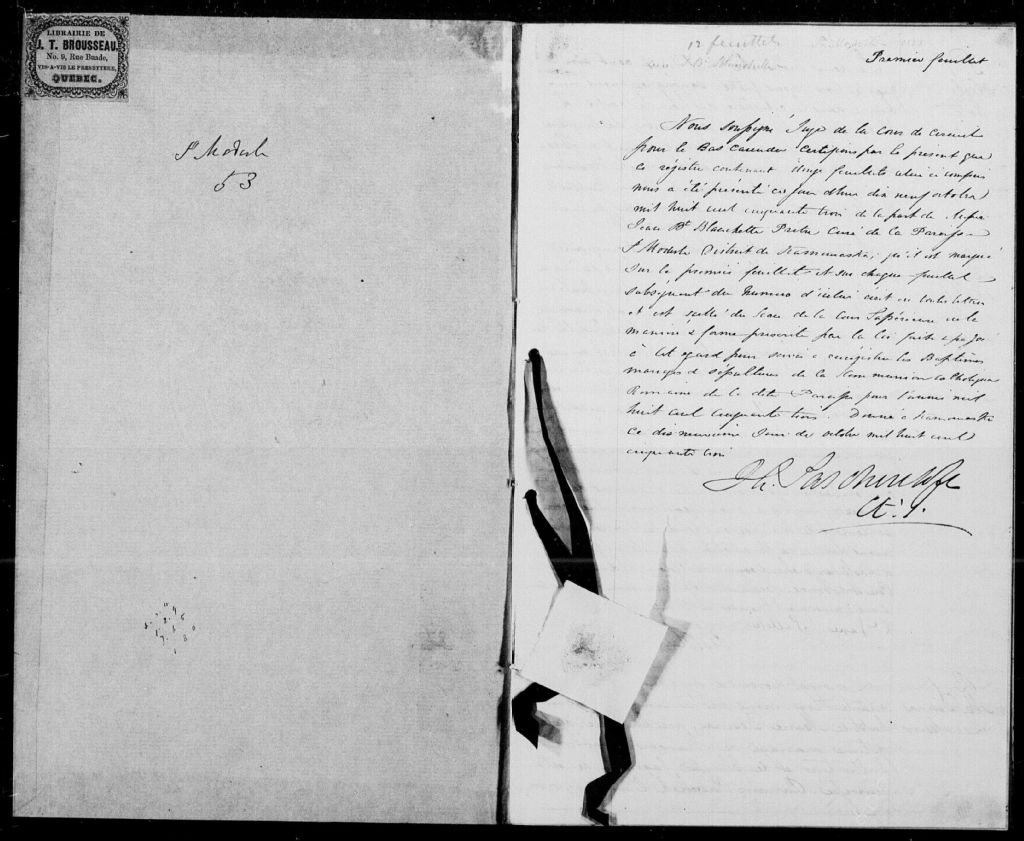 LIBRAIRIE DE
J. T. BROUSSEAU,
No. 9, Rue Buade,
VIS-A-VIS LE PRESBYTERE,
QUEBEC.
St Modeste
53
12 feuillets
Premier feuillet
Nous soussigné Juge de la cour de circuit
pour le Bas Canada certifions par le présent que
ce régistre contenant douze feuillets celui ci compris
nous a été présenté ce jour d'hui dix neuf octobre
mil huit cent cinquante trois de la part de
Jean Bte Blanchette Prêtre Curé de la Paroisse
St Modeste District de Kamouraska, qu'il est marqué
sur le premier feuillet et sur chaque feuillet
subséquent du numero d'icelui écrit en toutes lettres
et est scellé du sceau de la cour Supérieure en la
manière & forme prescrite par la loi faite &
à cet égard pour servir a enrégistrer les Baptêmes
mariages & sépultures de la Communion Catholique
Romaine de la dite Paroisse pour l'année mil
huit cent cinquante trois. Donné a Kamouraska
ce dix neuvieme Jour de octobre mil huit cent
cinquante trois